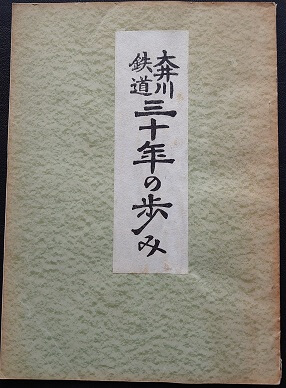 大井川
鉄道
三十年の歩み